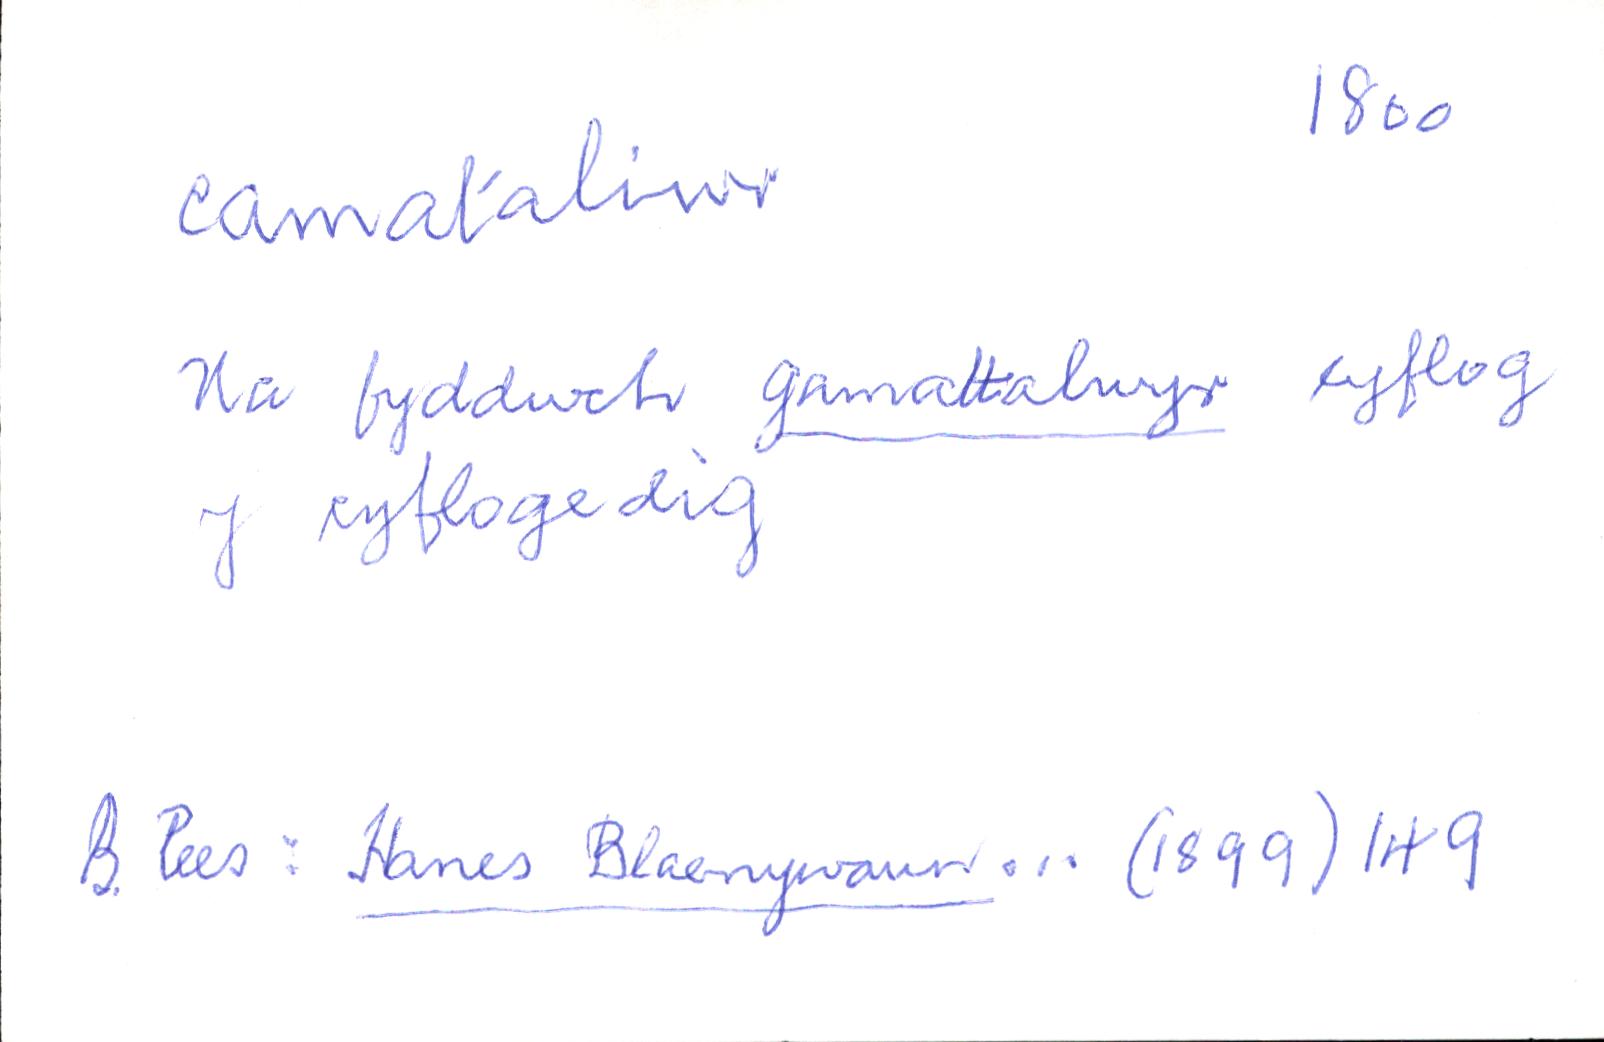 1800
camataliwr
Na fyddwch gamattalwyr cyflog
y cyflogedig
B. Rees: Hanes Blaenywaun... (1899) 149